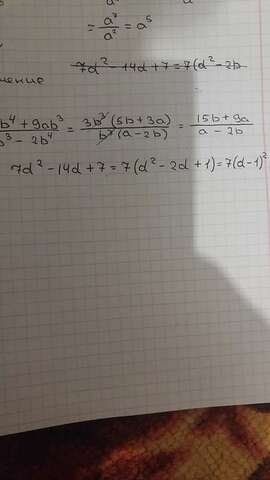 = a⁷/a² = a⁵
7d² - 14d + 7 = 7(d² - 2b
b⁴ + 9ab³ / b³ - 2b⁴ = 3b³(5b + 3a) / b³(a - 2b) = 15b + 9a / a - 2b
7d² - 14d + 7 = 7(d² - 2d + 1) = 7(d - 1)²